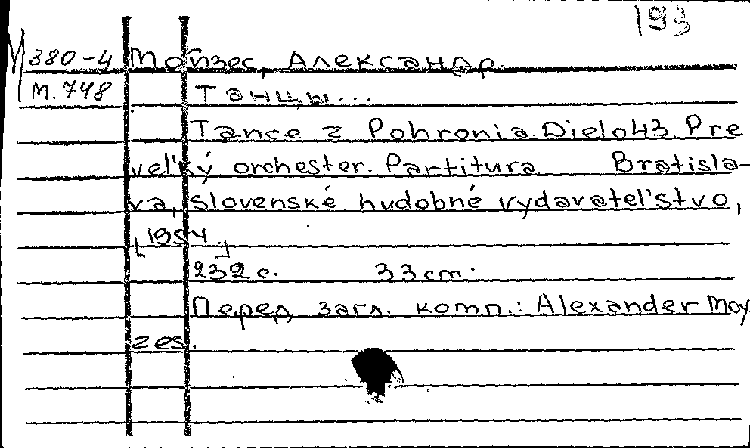 193
М 380-4 Мойзес, Александр.
М.748 Танцы...
Tance z Pohronia. Dielo 43. Pre
veľký orchester. Partitura Bratisla-
va, slovenské hudobné vydavateľstvo,
[1954]
232 с. 33 cm.
Перед загл. комп.: Alexander Moy
zes.